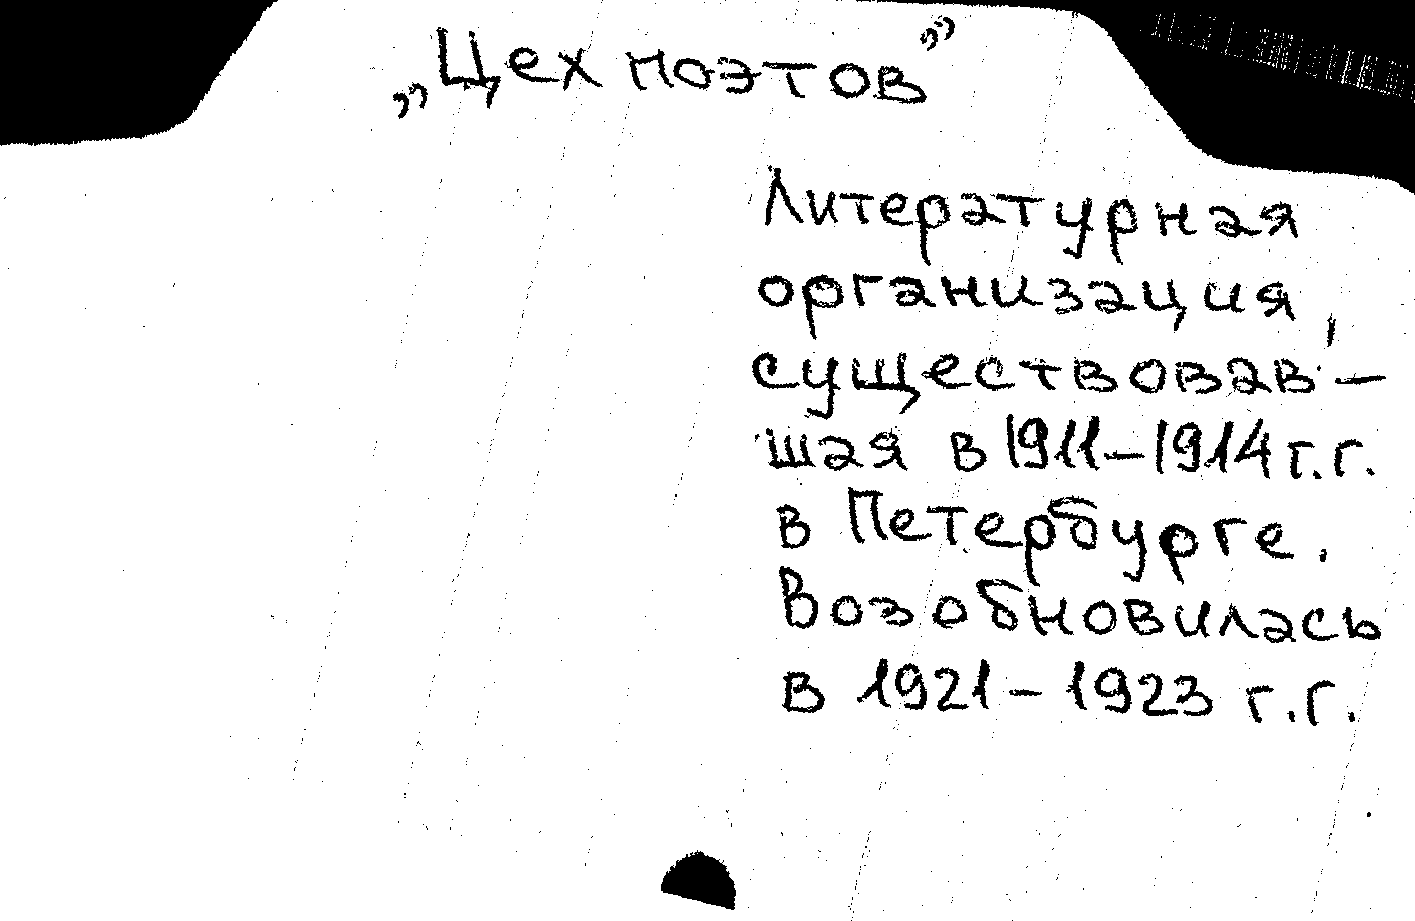 „Цех поэтов”
Литературная
организация,
существовав-
шая в 1911-1914 г.г.
в Петербурге.
Возобновилась
в 1921-1923 г.г.